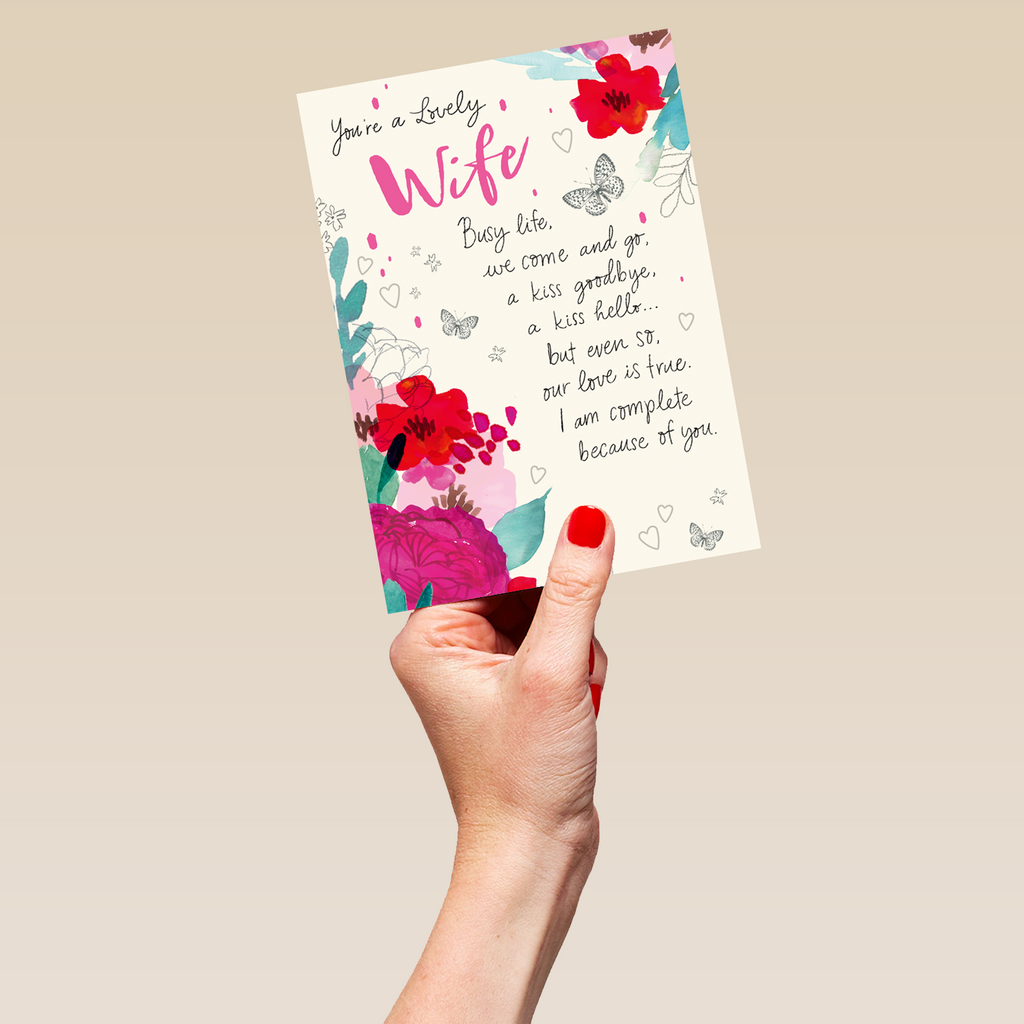 You're a Lovely
Wife
Busy life,
we come and go,
a kiss goodbye,
a kiss hello...
but even so,
our love is true.
I am complete
because of you.